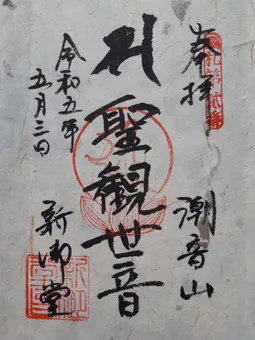 奉拝
潮音山
聖観世音
令和五年
五月三日
新御堂